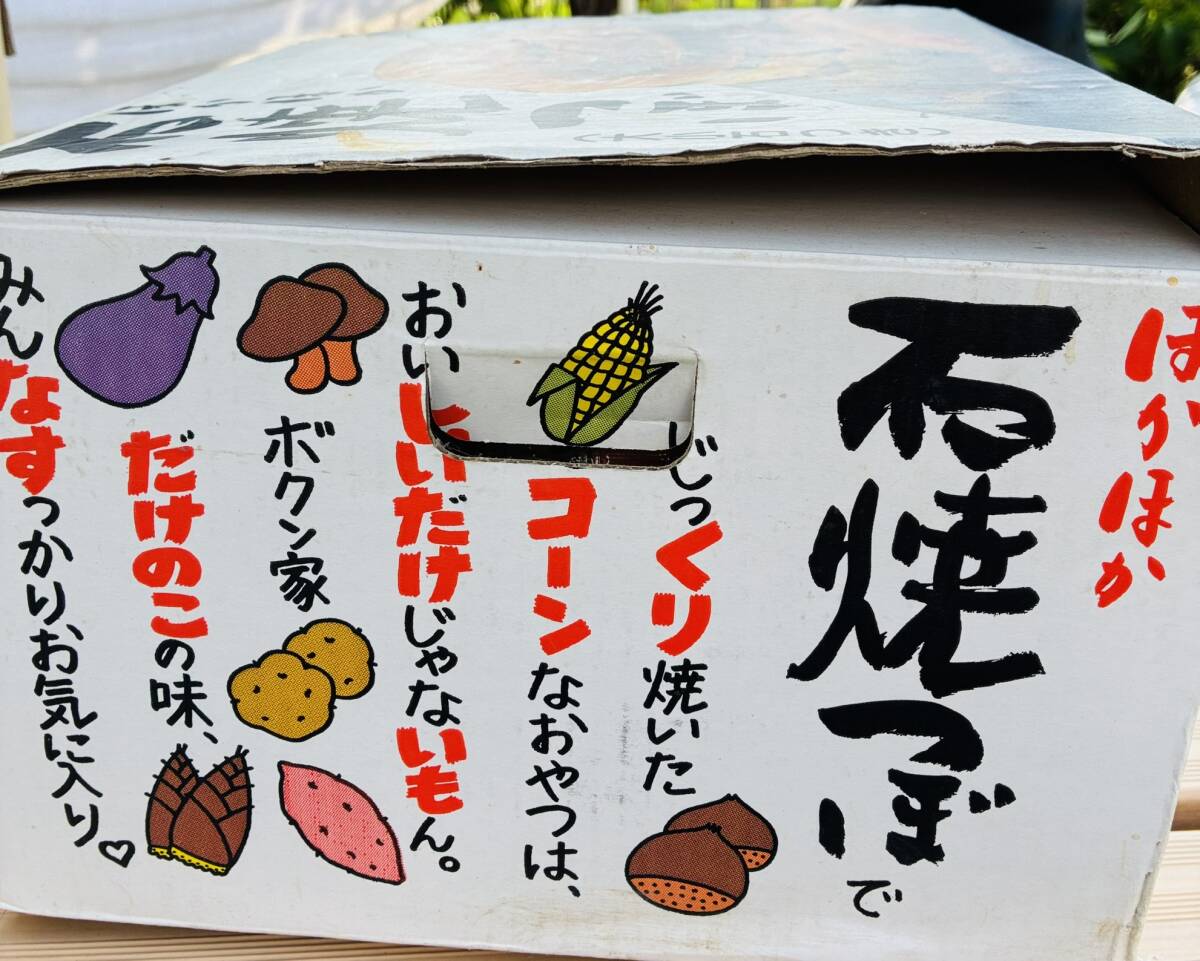 ほかほか
石焼つぼで
じっくり焼いた
コーンなおやつは、
おいしいだけじゃないもん。
ボクン家
だけのこの味、
みんなすっかりお気に入り♡